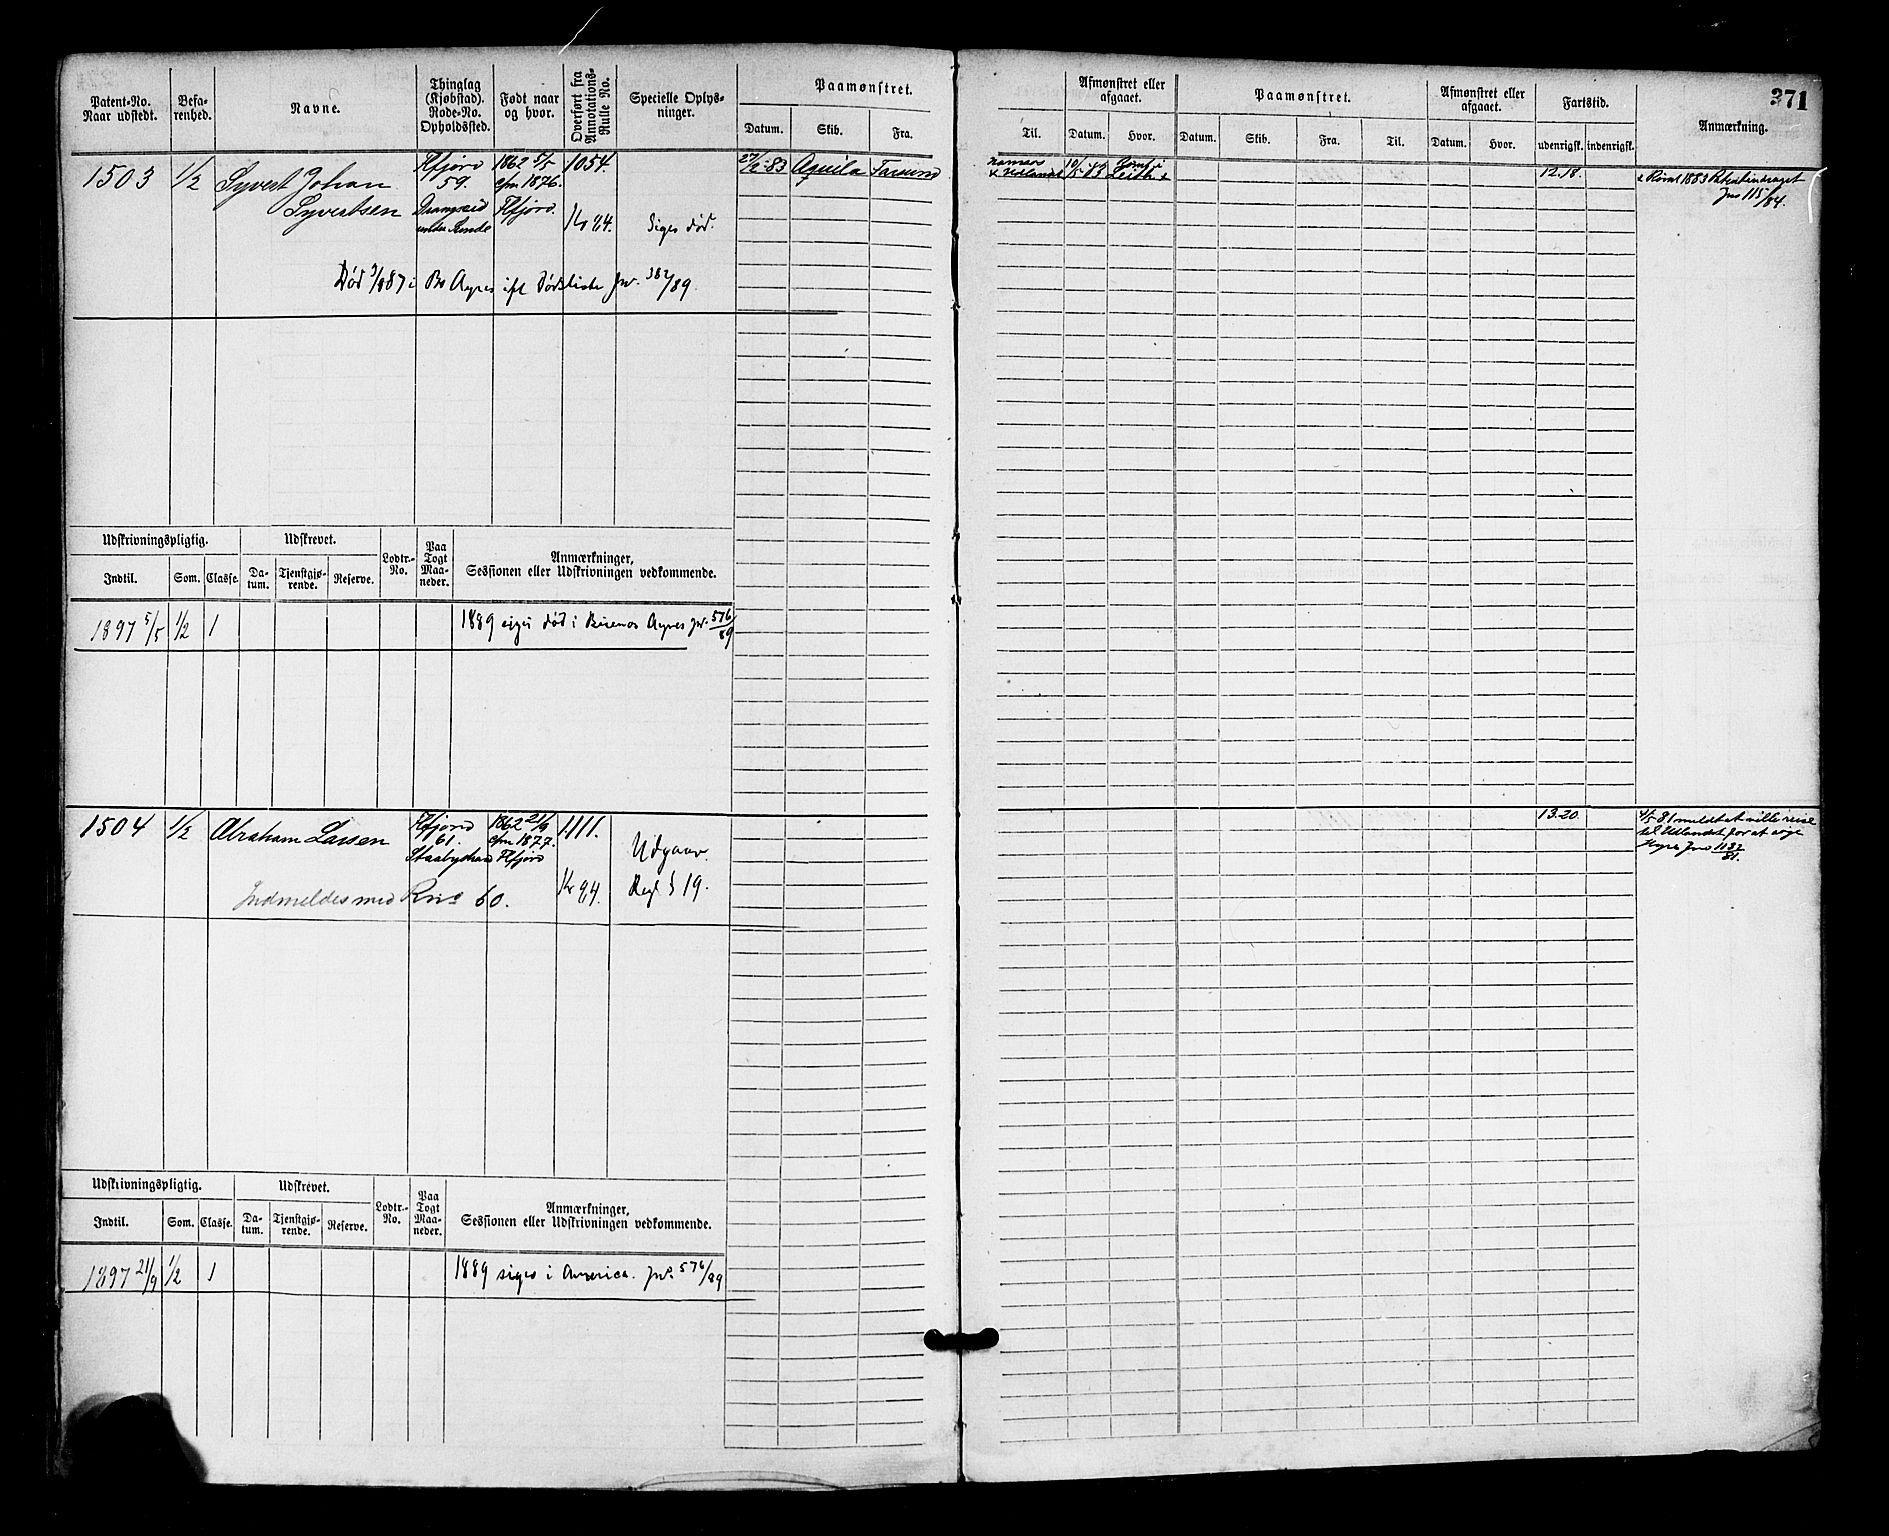 371
Patent-No. Naar udstedt.
Befarenhed.
Navne.
Thinglag (Kjøbstad). Rode-No. Opholdssted.
Født naar og hvor.
Overført fra Annotations-Rulle No.
Specielle Oplysninger.
Paamønstret.
Datum. Skib. Fra. Til.
Afmønstret eller afgaaet.
Datum. Hvor.
Paamønstret.
Datum. Skib. Fra. Til.
Afmønstret eller afgaaet.
Datum. Hvor.
Fartstid.
udenrigsk. indenrigsk.
Anmærkning.
1503 1/2 Syvert Johan
Syvertsen
Flfjord
59.
under Sunde
1862 5/5
cfm 1876.
Flfjord.
1054.
Siges død.
27/2-83 Aquila Farsund
Leith
12.18.
1883
Jno 115/84.
Død 87 i Bs Ayres ifl Dødsliste Jno. 382/89.
Udskrivningspligtig.
Indtil. Som. Classe.
Udskrevet.
Datum. Tjenstgjørende. Reserve.
Lodtr.-No.
Paa Togt Maaneder.
Anmærkninger,
Sessionen eller Udskrivningen vedkommende.
1897 5/5 1/2 1
1889 siges død i Buenos Ayres Jno. 576/89
1504 1/2 Abraham Larsen
Flfjord
61.
1862 21/9
cfm 1877.
Flfjord
1111.
Udgaar.
Regl § 19.
13.20.
4/5 81 meldt at ville reise
til Udlandet for at søge
Hyre Jno 1132/81.
Indmeldes med Rno 60.
Udskrivningspligtig.
Indtil. Som. Classe.
Udskrevet.
Datum. Tjenstgjørende. Reserve.
Lodtr.-No.
Paa Togt Maaneder.
Anmærkninger,
Sessionen eller Udskrivningen vedkommende.
1897 21/9 1/2 1
1889 siges i America. Jno 576/89